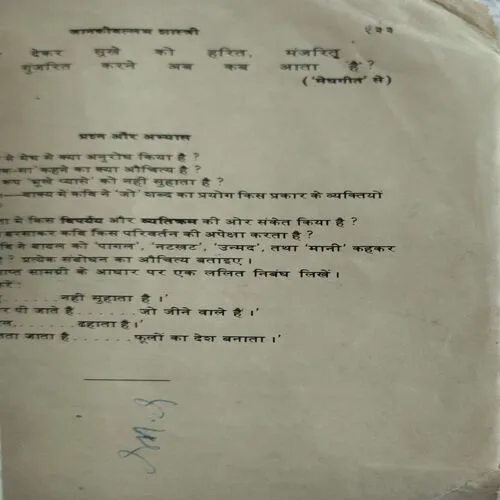 जानकीवल्लभ शास्त्री १३३
देकर सूखे को हरित, मंजरित
गुंजरित करने अब कब आता है ?
( 'मेघगीत' से )
प्रश्न और अभ्यास
ने मेघ से क्या अनुरोध किया है ?
कहने का क्या औचित्य है ?
रूप 'भूखे प्यासे' को नहीं सुहाता है ?
—वाक्य में कवि ने 'जो' शब्द का प्रयोग किस प्रकार के व्यक्तियों
में किस विपर्यय और व्यतिक्रम की ओर संकेत किया है ?
बरसाकर कवि किस परिवर्तन की अपेक्षा करता है ?
ने बादल को 'पागल', 'नटखट', 'उन्मद', तथा 'मानी' कहकर
है ? प्रत्येक संबोधन का औचित्य बताइए ।
सामग्री के आधार पर एक ललित निबंध लिखें ।
........नहीं सुहाता है ।'
पी जाते है........जो जीने वाले है ।'
........ढहाता है ।'
जाता है.......फूलों का देश बनाता ।'